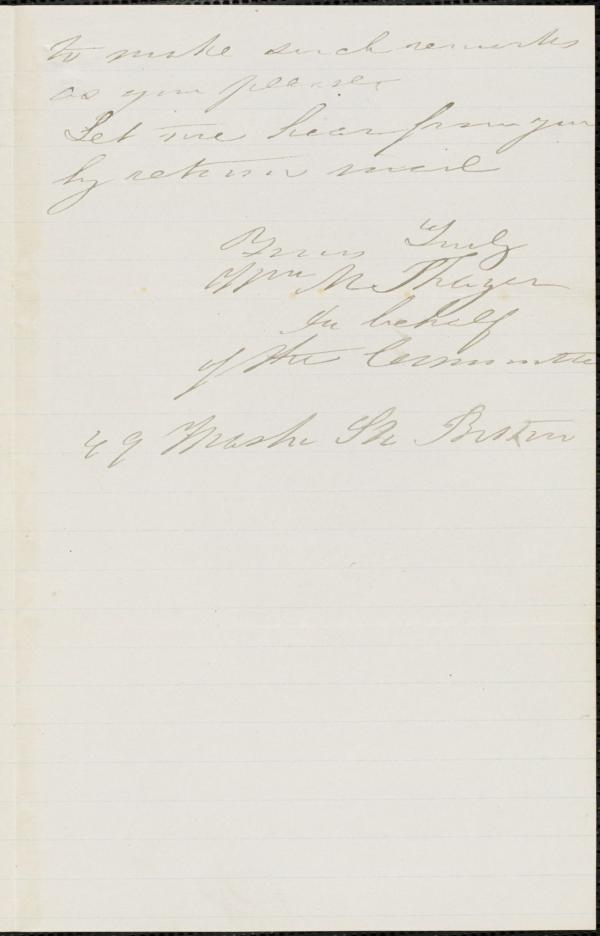 to make such remarks
as you please.
Let me hear from you
by return mail
Yours Truly
Wm M. Thayer
In behalf
of the Committee
49 Washn St. Boston